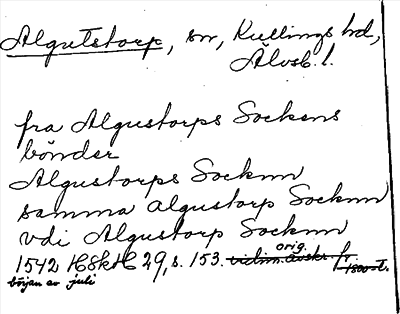 Algutstorp, sn, Kullings hd,
Älvsb. l.
fra Algustorps Sockens
bönder
Algustorps Socknn
samma algustorp Socknn
vdi Algustorp Socknn
orig.
1542 HSkH 29, s. 153. vidim. avskr. fr.
början av juli 1800-t.